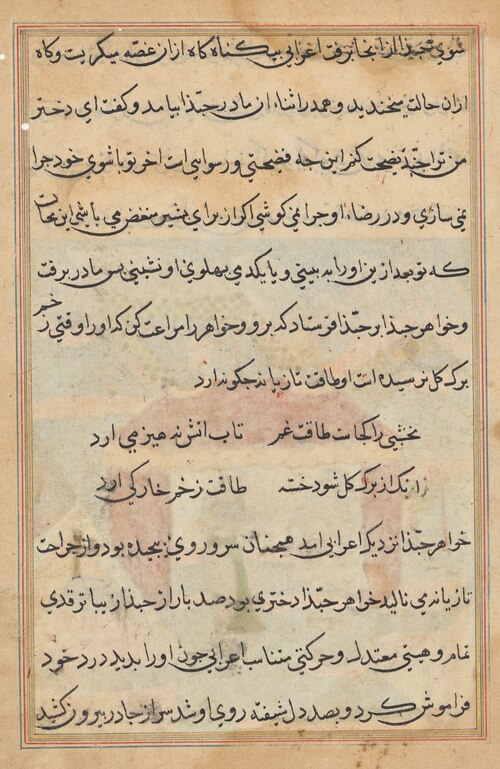 شوی حبذا از انجا برفت اعرابی بیکناه کاه ازان غصه میکریست و کاه
ازان حالت میخندید و همدر اثناء ان مادر حبذا بیامد و کفت ای دختر
من ترا چند نصیحت کنم این چه فضیحتی و رسوایی است اخر تو با شوی خود چرا
نمی سازی و در رضاء او چرا نمی کوشی اکر از برای بشیر منغص می باشی این
که تو بعد ازین او را به بینی و یا یکدمی پهلوی او نشینی پس مادر برفت
و خواهر حبذا بر حبذا فرستاد که برو و خواهر را مراعت کن که او را وقتی زخم
برک کل نرسیده است او طاقت تازیانه چکونه دارد
نخشبی را کجاست طاقت غم تاب اتش نه هیزمی ارد
انک از برک کل شود خسته طاقت زخم خار کی ارد
خواهر حبذا نزدیک اعرابی امد همچنان سر و روی پیچیده بود و از جراحت
تازیانه می نالید خواهر حبذا دختری بود صد بار از حبذا زیباتر قدی
تمام و هیتی معتدل و حرکتی متناسب اعرابی چون او را بدید درد خود
فراموش کرد و بصد دل شیفته روی او شد سر از چادر بیرون کشید